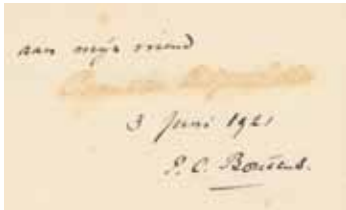 aan mijn vriend
3 Juni 1921
P. C. Boutens.